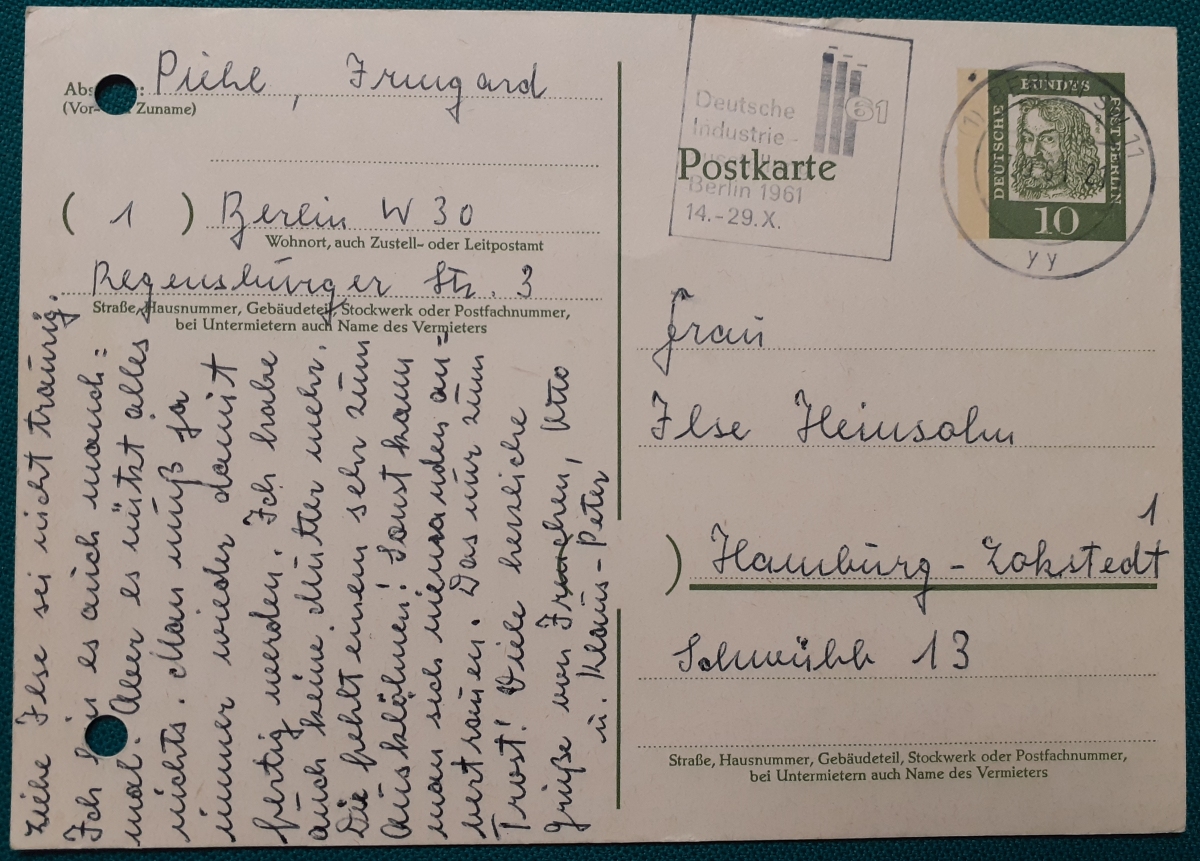 Abs :
(Vor- Zuname)
Piehl, Irmgard
( 1 ) Berlin W 30
Wohnort, auch Zustell- oder Leitpostamt
Regensburger Str. 3
Straße, Hausnummer, Gebäudeteil, Stockwerk oder Postfachnummer,
bei Untermietern auch Name des Vermieters
Liebe Ilse sei nicht traurig.
Ich bin es auch manch=
mal. Aber es nützt alles
nichts. Man muß ja
immer wieder damit
fertig werden. Ich habe
auch keine Mutter mehr.
Die fehlt einem sehr zum
Ausklöhnen! Sonst kann
man sich niemanden an=
vertrauen. Das nur zum
Trost! Viele herzliche
Grüße von Irmchen, Otto
u. Klaus-Peter
Deutsche
Industrie-
Berlin 1961
14.-29.X.
61
Postkarte
DEUTSCHE
BUNDES
POST BERLIN
10
yy
Frau
Ilse Heinsohn
1
) Hamburg - Lokstedt
Schwübb 13
Straße, Hausnummer, Gebäudeteil, Stockwerk oder Postfachnummer,
bei Untermietern auch Name des Vermieters